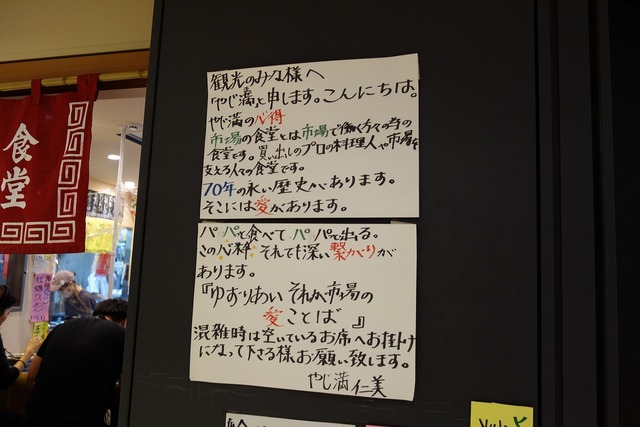 観光のみな様へ
「やじ満」と申します。こんにちは。
やじ満の心得
市場の食堂とは市場で働く方々の為の
食堂です。買い出しのプロの料理人や市場を
支える人々の食堂です。
70年の永い歴史があります。
そこには愛があります。
パパっと食べて、パパっと出る。
この心粋 それでも深い繋がりが
あります。
『ゆずりあい それが市場の
愛ことば』
混雑時は空いているお席へお掛け
になって下さる様、お願い致します。
やじ満 仁美
食堂